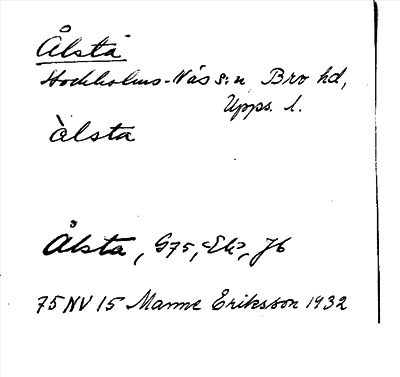 Ålsta
Stockholms-Näs sn, Bro hd,
Upps. l.
Àlsta
Ålsta, G75, Ek, J6
75 NV 15 Manne Eriksson 1932